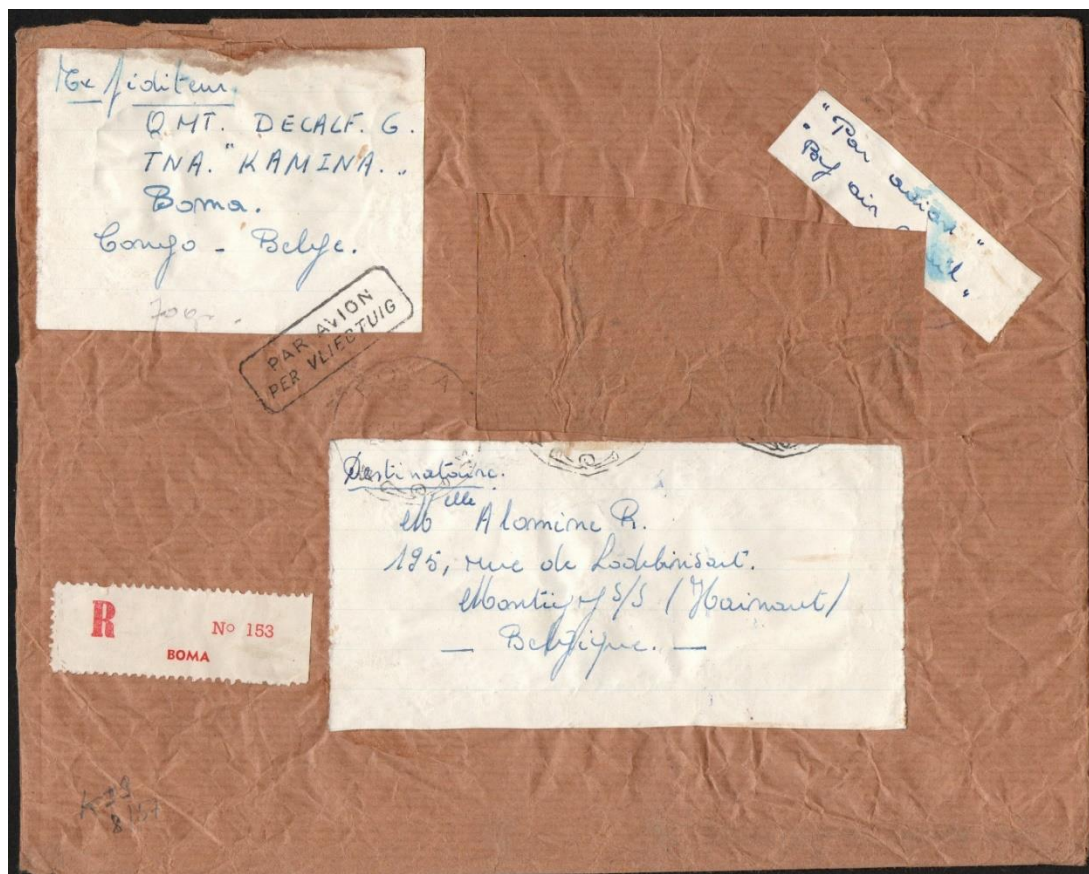 Expéditeur.
Q.MT. DECALF. G.
TNA. "KAMINA..
Boma.
Congo - Belge.
"Par avion"
"By air
PAR AVION
PER VLIEGTUIG
Destinataire.
Mlle Alomine R.
195, rue de Lodelinsart.
Montigny S/S (Hainaut)
— Belgique. —
R
No 153
BOMA